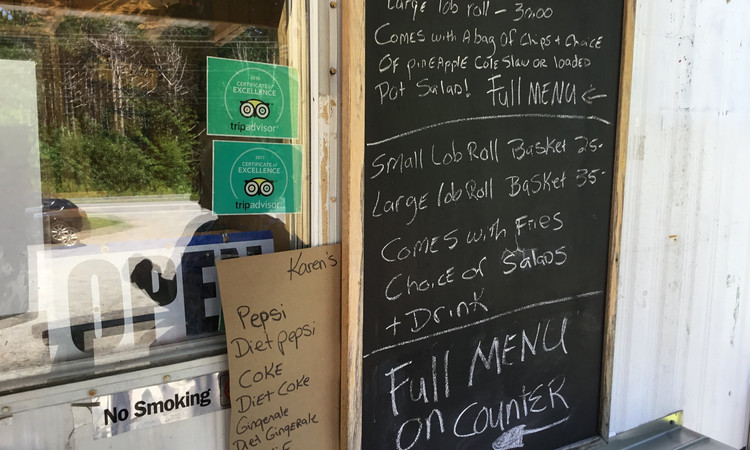 Large lob roll - 30.00
Comes with A bag of Chips + Choice
Of pineapple Coleslaw or loaded
Pot Salad! Full MENU ←
Small Lob Roll Basket 25-
Large lob Roll Basket 35-
Comes with Fries
Choice of Salads
+ Drink
Full MENU
on Counter
2016
CERTIFICATE of
EXCELLENCE
tripadvisor
2017
CERTIFICATE of
EXCELLENCE
tripadvisor
OPEN
No Smoking
Karen's
Pepsi
Diet pepsi
COKE
DIET COKE
Gingerale
Diet Gingerale